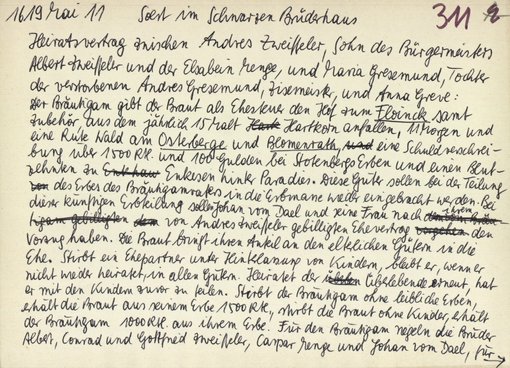 1619 Mai 11 Soest im Schwarzen Brüderhaus 311
Heiratsvertrag zwischen Andres Zweiffeler, Sohn des Bürgermeisters
Albert Zweiffeler und der Elsabein Menge, und Maria Gresemund, Tochter
der verstorbenen Andres Gresemund, Zisemeister, und Anna Greve:
Der Bräutigam gibt der Braut als Ehesteue den Hof zum Floinck samt
Zubehör, aus dem jährlich 15 Malt Hartkorn anfallen, 11 Morgen und
eine Rute Wald am Osterberge und Blomenrath, eine Schuldverschrei-
bung über 1500 Rtl. und 100 Gulden bei Stotenbergs Erben und einen Blut-
zehnten zu Enkesen hinter Paradies. Diese Güter sollen bei der Teilung
des Erbes des Bräutigamvaters in die Erbmasse wieder eingebracht werden. Bei
dieser künftigen Erbteilung sollen Johan vom Dael und seine Frau nach ihrem
von Andres Zweiffeler gebilligten Ehevertrag den
Vorzug haben. Die Braut bringt ihren Anteil an den elterlichen Gütern in die
Ehe. Stirbt ein Ehepartner unter Hinterlassung von Kindern, bleibt er, wenn er
nicht wieder heiratet, in allen Gütern. Heiratet der Überlebende erneut, hat
er mit den Kindern zuvor zu teilen. Stirbt der Bräutigam ohne leibliche Erben,
erhält die Braut aus seinem Erbe 1500 Rtl., stirbt die Braut ohne Kinder, erhält
der Bräutigam 1000 Rtl. aus ihrem Erbe. Für den Bräutigam siegeln die Brüder
Albert, Conrad und Gottfried Zweiffeler, Caspar Menge und Johan vom Dael, für →